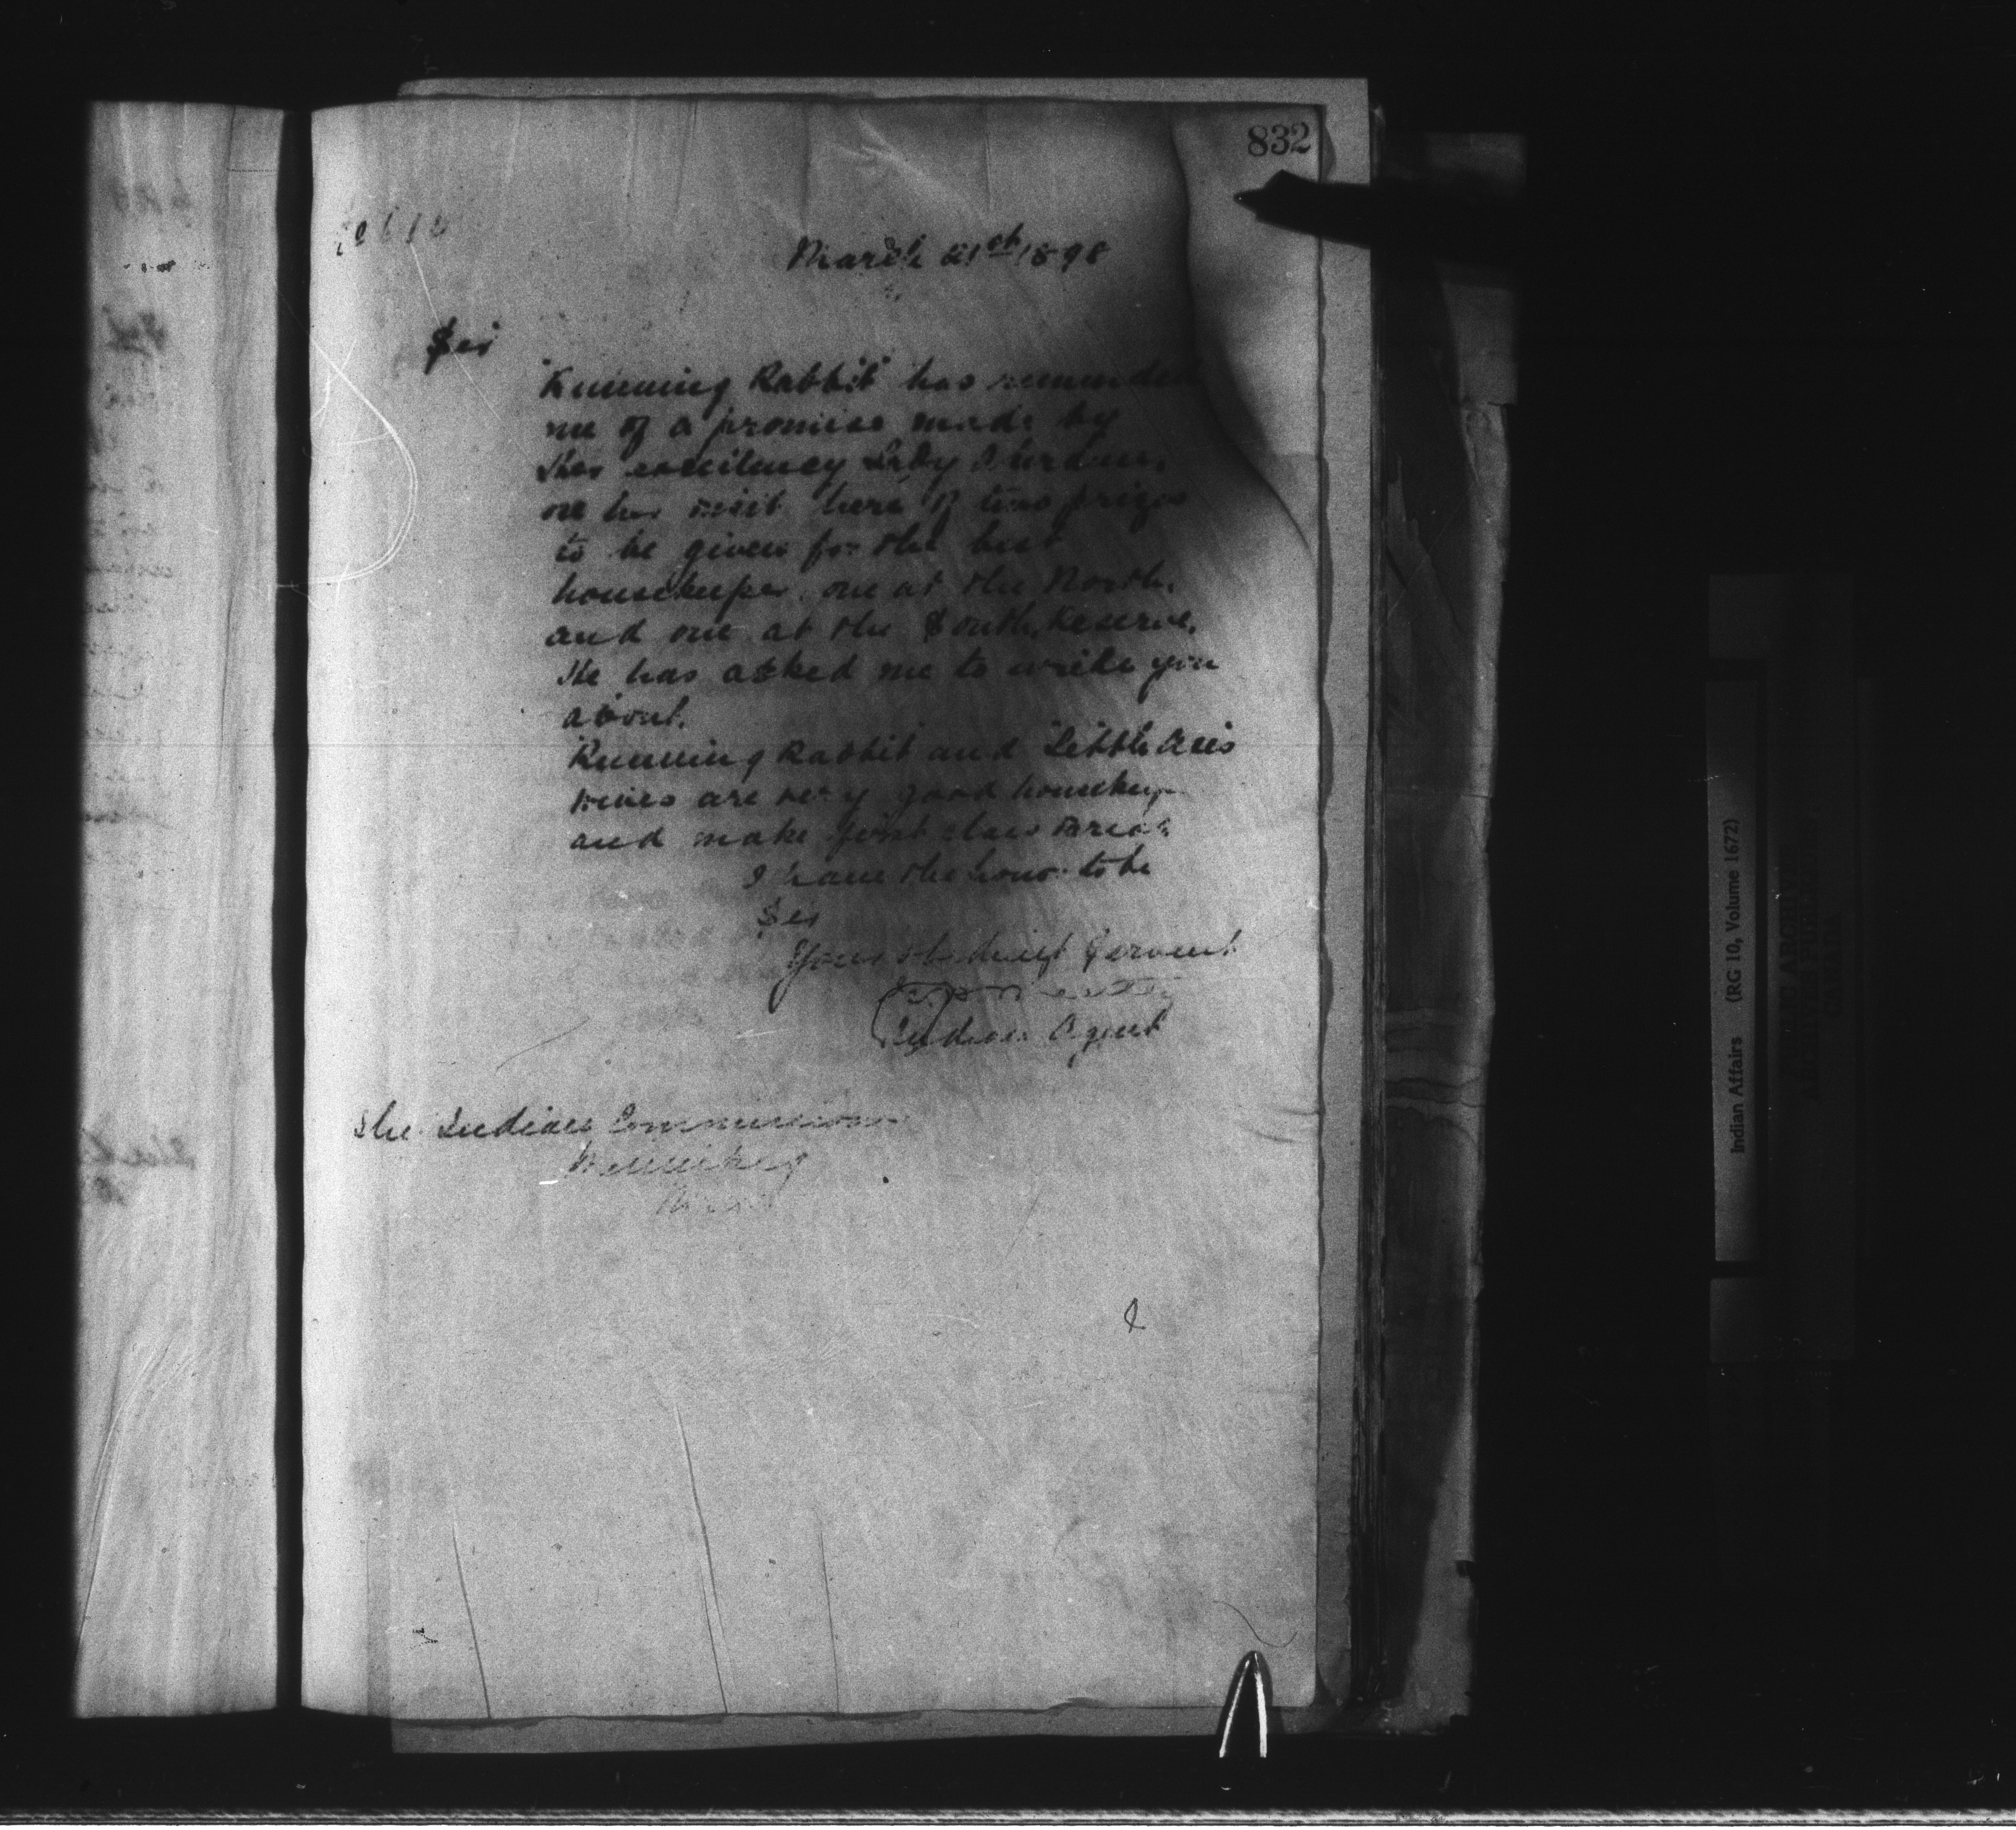 832
March 21st 1898
Sir
"Running Rabbit" has reminded
me of a promise made by
Her excellency Lady
on her visit here of two prizes
to be given for the best
housekeeper. one at the North,
and one at the South Reserve.
He has asked me to write you
about.
Running Rabbit and Little Axes
wives are very good housekeep
and make first class Bread
I have the honor to be
Sir
Your obedient Servant
Indian Agent
The Indian Commissioner
Winnipeg
Indian Affairs (RG 10, Volume 1672)
PUBLIC ARCHIVES
ARCHIVES PUBLIQUES
CANADA